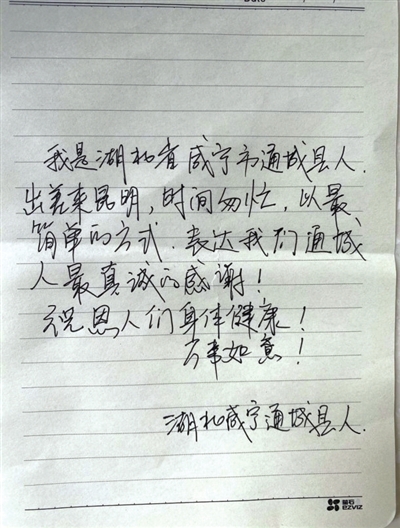 我是湖北省咸宁市通城县人.
出差来昆明,时间匆忙,以最
简单的方式.表达我们通城
人最真诚的感谢!
祝恩人们身体健康!
万事如意!
湖北咸宁通城县人.
萤石
EZVIZ